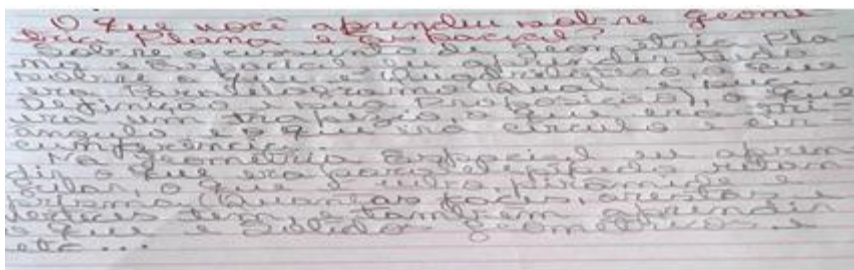 O que você aprendeu sobre geome
tria Plana e Espacial?
Sobre o de geometria Pla-
na e Espacial eu aprendi tudo
sobre o que é Quadrilátero, o que
era Paralelogramo (Qual a sua
Definição e sua Proposição), o que
era um trapézio, o que era tri-
angulo e o que era circulo e cir-
cunferência.
Na Geometria Espacial eu apren
di o que era paralelepipedo retan
gular, o que é cubo, piramide e
prisma (Quantas faces, arestas e
vertices tem, e tambem aprendi
o que é Solidos geometricos e
etc...